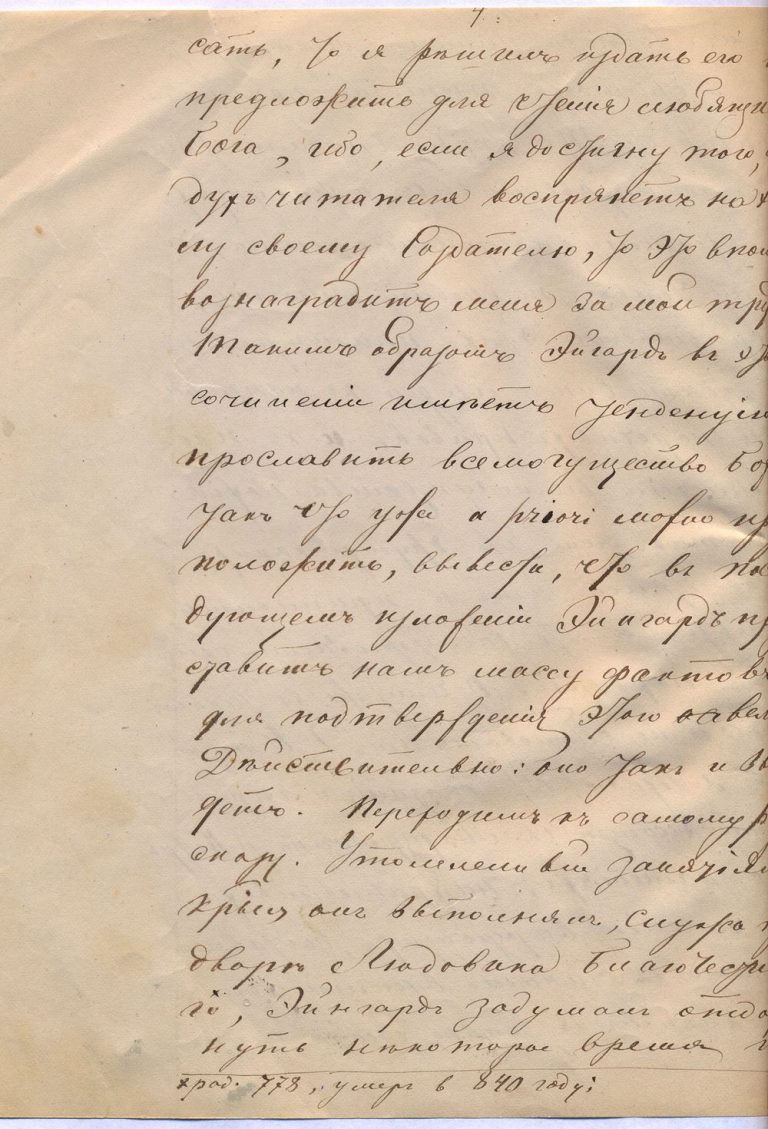 4.
сать, то я рѣшилъ издать его
предложить для чтенія любящи
Бога, ибо, если я достигну того,
духъ читателя воспрянетъ на х
лу своему Создателю, то это впол
вознаградитъ меня за мой тру
Такимъ образомъ Эйгардъ въ это
сочиненіи имѣетъ тенденцію
прославить всемогущество Бо
такъ что уже a priori можно пр
положить, вывести, что въ по
дующемъ изложеніи Эйнгардъ пр
ставитъ намъ массу фактовъ
для подтвержденія этого
Дѣйствительно: оно такъ и вы
детъ. Переходимъ къ самому р
сказу. Утомленный занятіям
которыя онъ выполнялъ, служа
дворѣ Людовика Благочести
го, Эйнгардъ задумалъ отдо
нуть некоторое время
x род. 778, умеръ в 840 году;